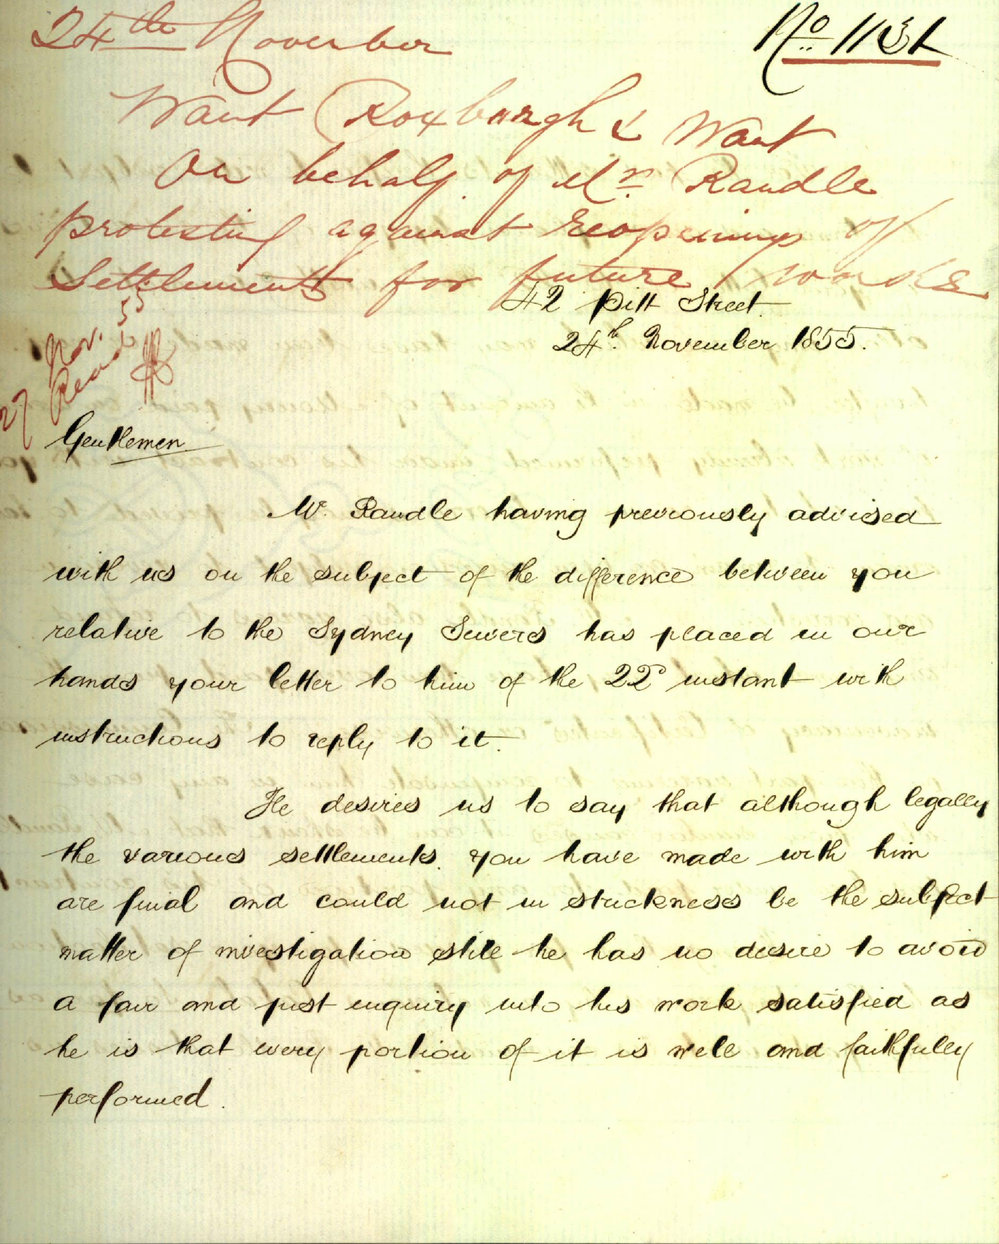 24th November
No 1131
Want Roxburgh & Want
On behalf of Mr. Randle
protesting against reopening of
Settlements for future works
27 Nov. 55
Read
42 Pitt Street
24th. November 1855.
Gentlemen
Mr. Randle having previously advised
with us on the subject of the difference between you
relative to the Sydney Sewers has placed in our
hands your letter to him of the 22d instant with
instructions to reply to it.
He desires us to say that although legally
the various settlements you have made with him
are final and could not in strickness be the subject
matter of investigation still he has no desire to avoid
a fair and just enquiry into his work satisfied as
he is that every portion of it is well and faithfully
performed.